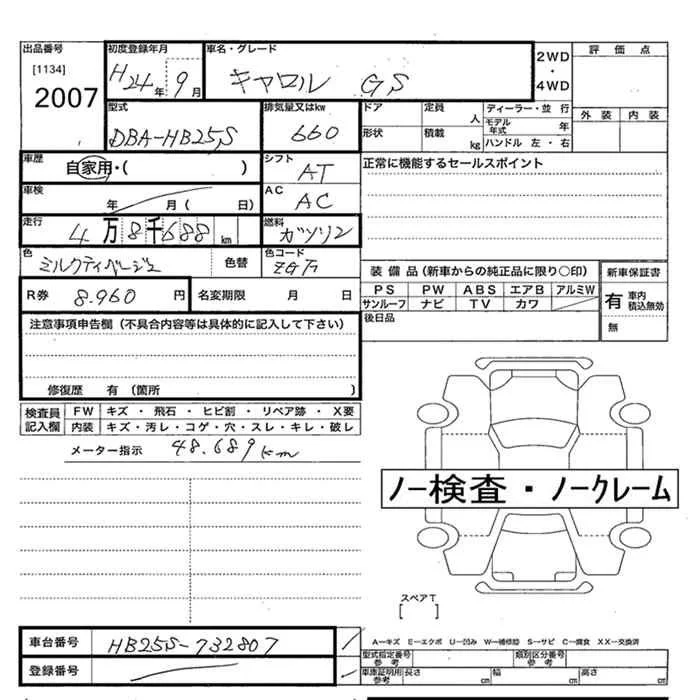 出品番号 初度登録年月 車名・グレード 2WD・4WD 評価点
[1134] 2007 H24年 9月 キャロル GS
型式 排気量又はkw ドア 定員 人 ディーラー・並行 外装 内装
DBA-HB25S 660 形状 積載 kg モデル年式 年 ハンドル 左・右
車歴 自家用・( ) シフト AT 正常に機能するセールスポイント
車検 年 月( 日) AC AC
走行 4万8千688km 燃料 ガソリン
色 ミルクティベージュ 色替 色コード
装備品(新車からの純正品に限り○印) 新車保証書
R券 8.960円 名変期限 月 日 PS PW ABS エアB アルミW 有 車内 積込無効
サンルーフ ナビ TV カワ
注意事項申告欄(不具合内容等は具体的に記入して下さい) 後日品 無
修復歴 有(箇所 )
検査員記入欄 FW キズ・飛石・ヒビ割・リペア跡・X要
内装 キズ・汚レ・コゲ・穴・スレ・キレ・破レ
メーター指示 48.689km
ノー検査・ノークレーム
スペアT
[ ]
車台番号 HB25S-732807 A-キズ E-エクボ U-凹み W-補修跡 S-サビ C-腐食 XX-交換済
型式指定番号 参考 類別区分番号 参考
登録番号 車庫証明用 参考 長さ cm 幅 cm 高さ cm